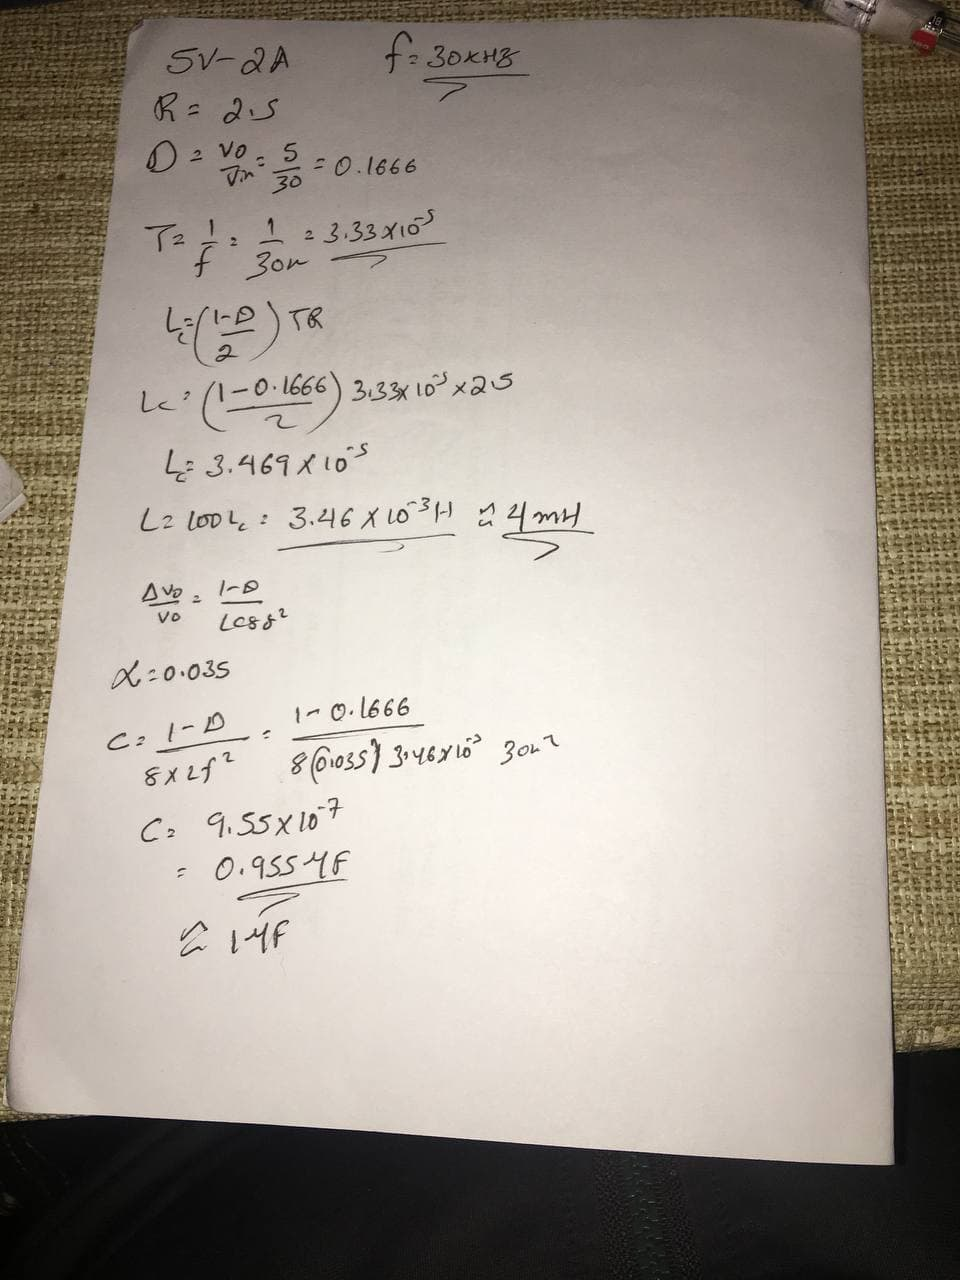 5V-2A f=30KHz
R= 2.5
D = Vo/Vin = 5/30 = 0.1666
T= 1/f = 1/30K = 3.33x10^-5
Lc=((1-D)/2) TR
Lc= ((1-0.1666)/2) 3.33x10^-5 x2.5
Lc= 3.469x10^-5
L=100Lc = 3.46x10^-3H ≈ 4mH
ΔVo/Vo = (1-D)/(LC8f^2)
α=0.035
C= (1-D)/(8αLf^2) = (1-0.1666)/(8(0.035)3.46x10^-3 30K^2)
C= 9.55x10^-7
= 0.955μF
≈ 1μF